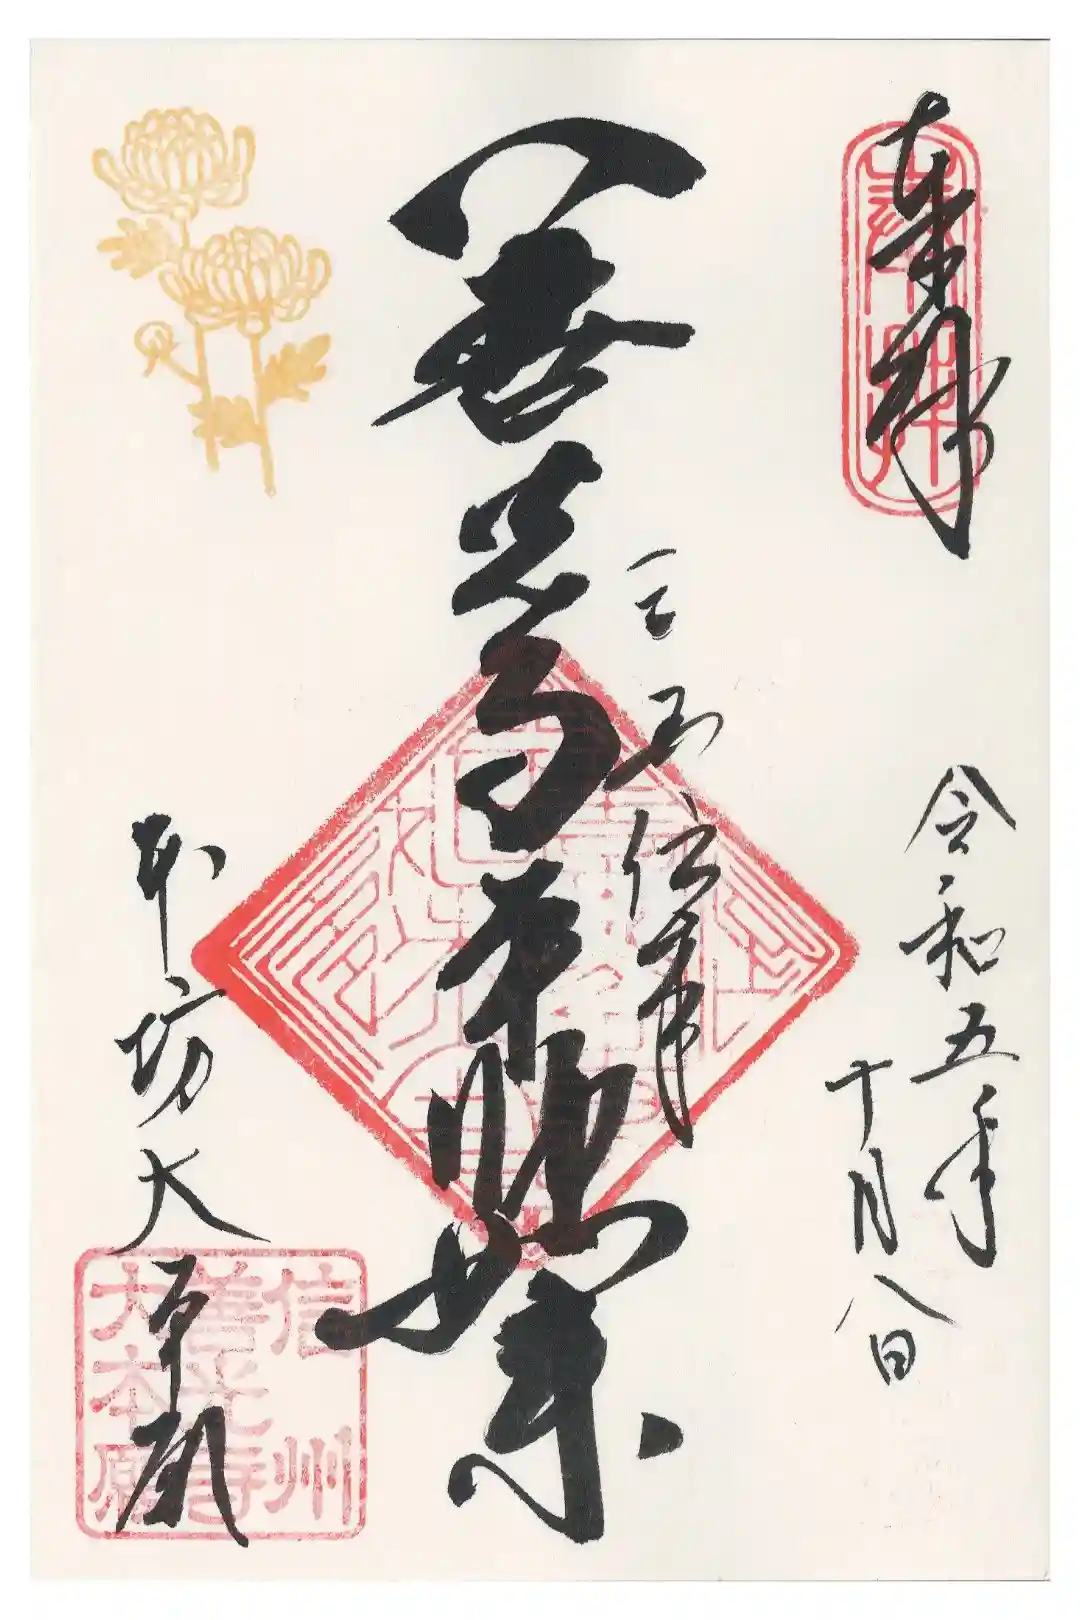 奉拝
令和五年
十月八日
三国伝来
善光寺本如来
本坊大本願
信州
善光寺
大本願